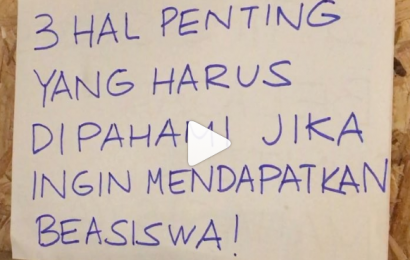 3 HAL PENTING
YANG HARUS
DIPAHAMI JIKA
INGIN MENDAPATKAN
BEASISWA!